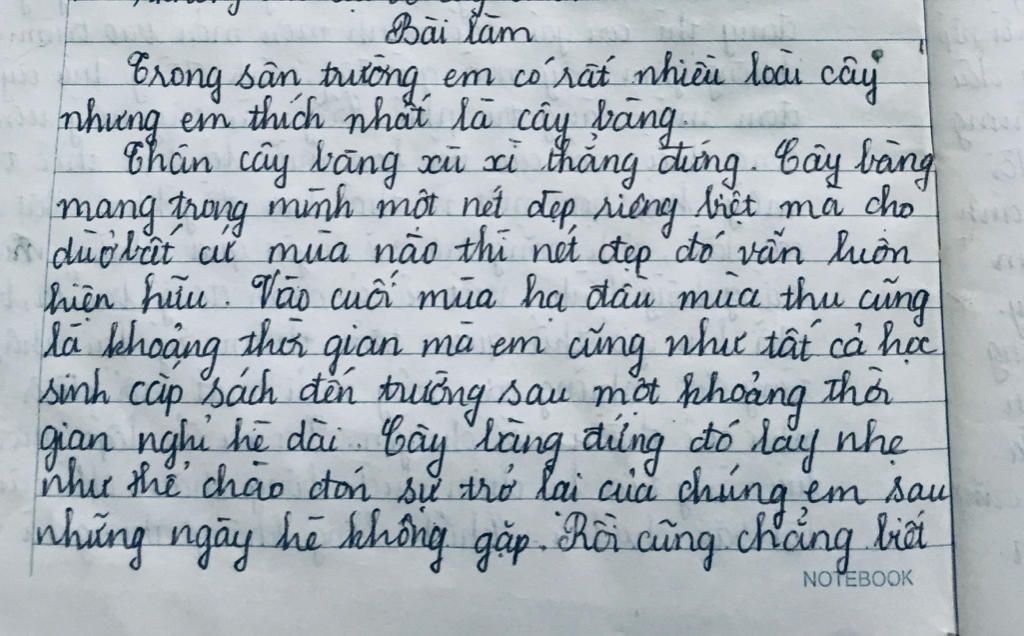 Bài làm
Trong sân trường em có rất nhiều loài cây
nhưng em thích nhất là cây bàng.
Thân cây bàng xù xì thẳng đứng. Cây bàng
mang trong mình một nét đẹp riêng biệt mà cho
dù ở bất cứ mùa nào thì nét đẹp đó vẫn luôn
hiện hữu. Vào cuối mùa hạ đầu mùa thu cũng
là khoảng thời gian mà em cũng như tất cả học
sinh cắp sách đến trường sau một khoảng thời
gian nghỉ hè dài. Cây bàng đứng đó lay nhẹ
như thể chào đón sự trở lại của chúng em sau
những ngày hè không gặp. Rồi cũng chẳng biết
NOTEBOOK